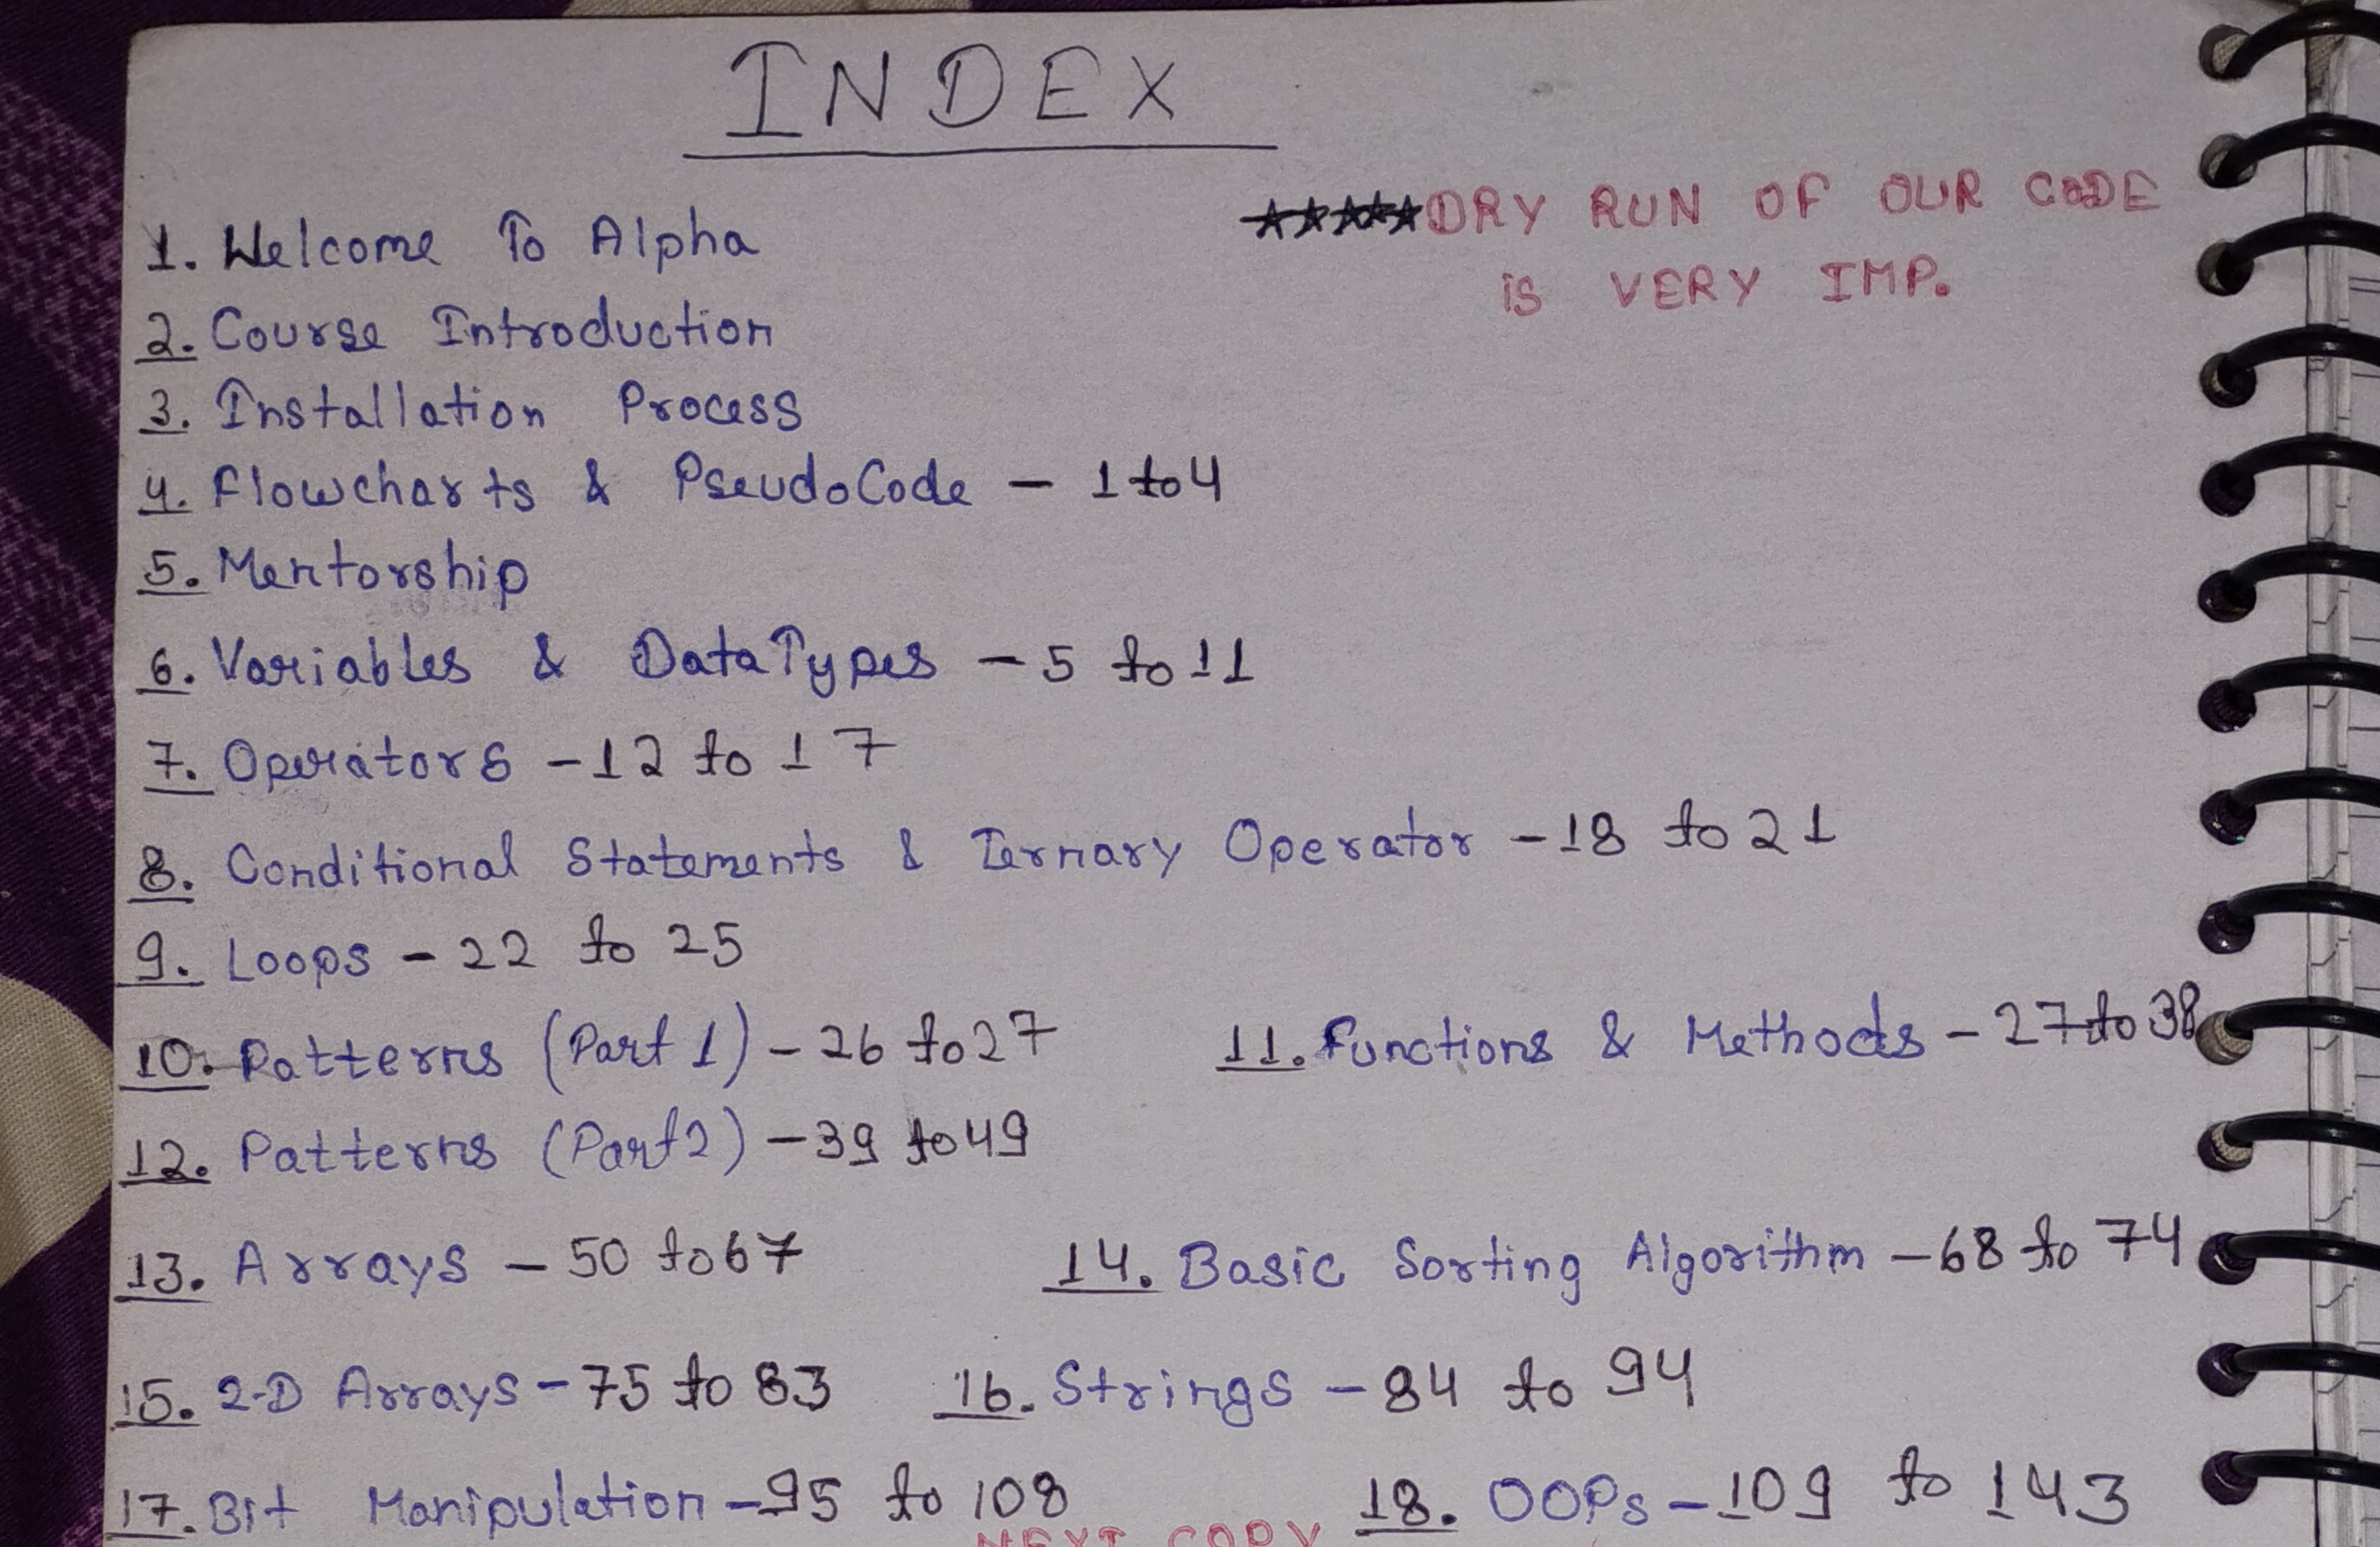 INDEX
★★★★★DRY RUN OF OUR CODE
is VERY IMP.
1. Welcome To Alpha
2. Course Introduction
3. Installation Process
4. Flowcharts & PseudoCode - 1 to 4
5. Mentorship
6. Variables & DataTypes - 5 to 11
7. Operators - 12 to 17
8. Conditional Statements & Ternary Operator - 18 to 21
9. Loops - 22 to 25
10. Patterns (Part 1) - 26 to 27 11. Functions & Methods - 27 to 38
12. Patterns (Part 2) - 39 to 49
13. Arrays - 50 to 67 14. Basic Sorting Algorithm - 68 to 74
15. 2-D Arrays - 75 to 83 16. Strings - 84 to 94
17. Bit Manipulation - 95 to 108 18. OOPs - 109 to 143
NEXT COPY